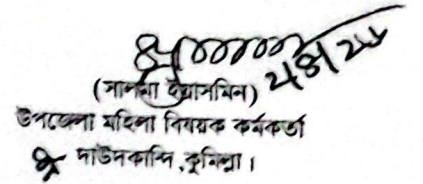 (সালমা ইয়াসমিন)
উপজেলা মহিলা বিষয়ক কর্মকর্তা
দাউদকান্দি, কুমিল্লা।